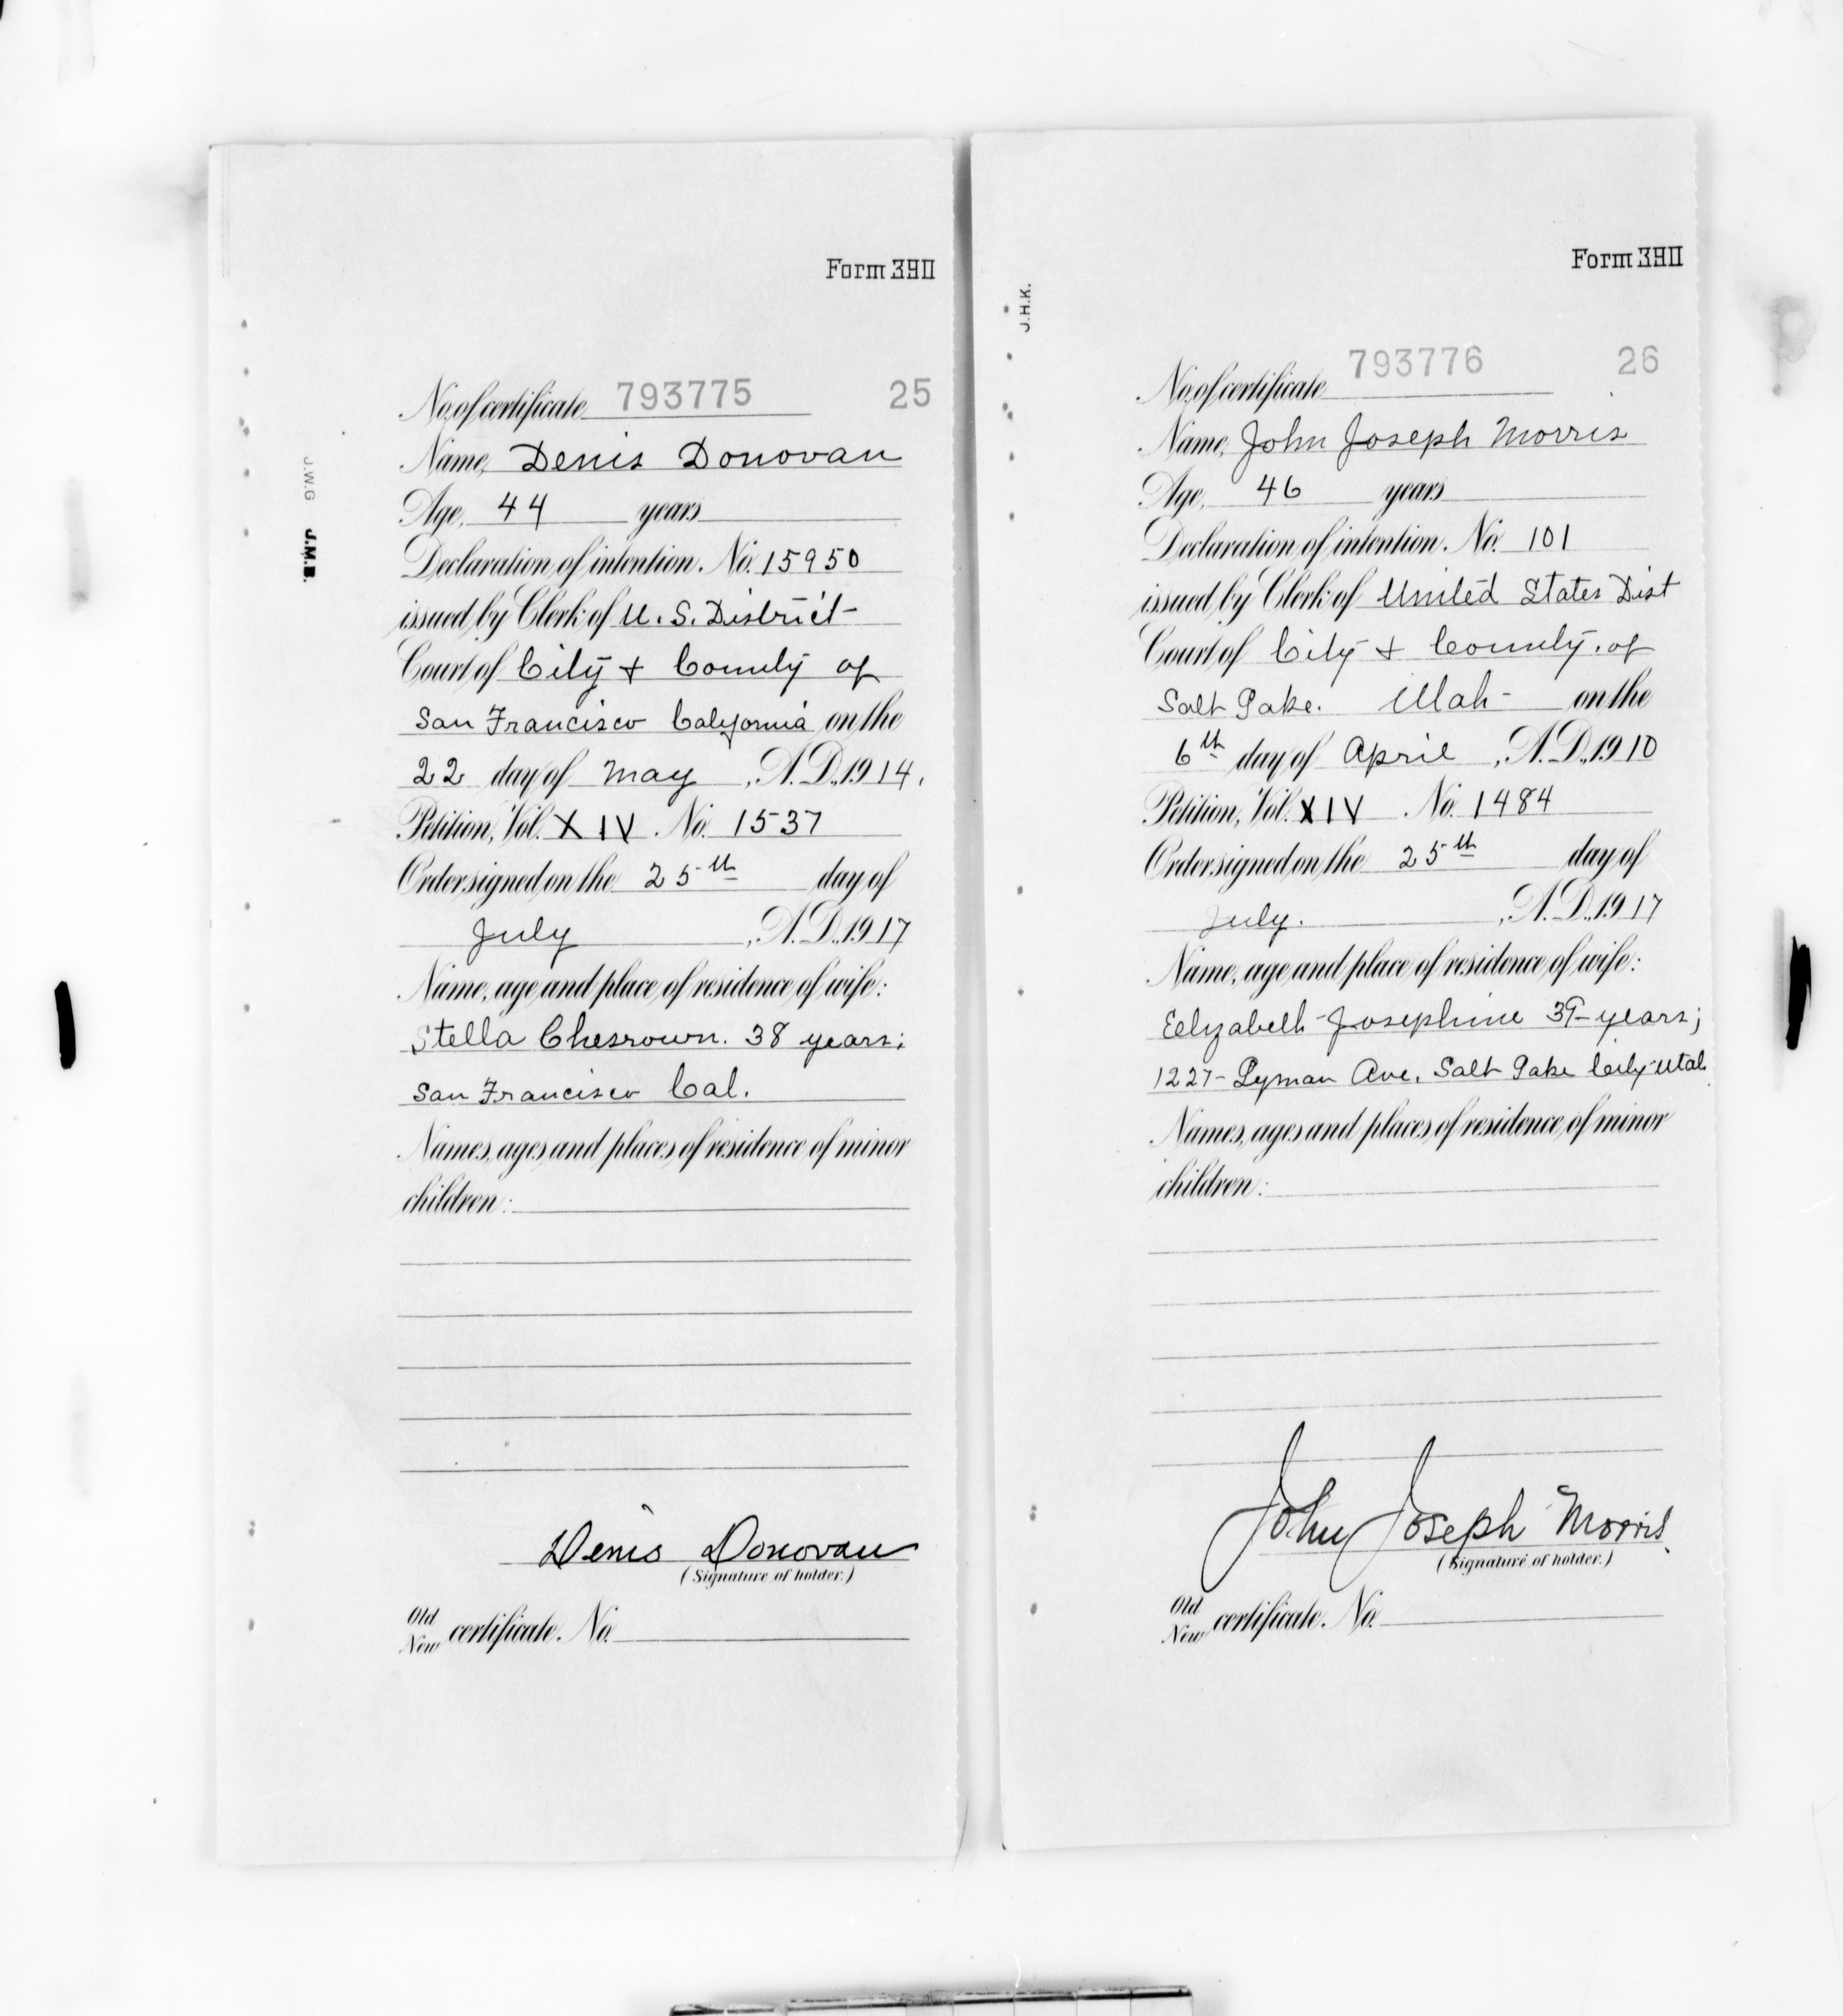 Form 390
No. of certificate 793775 25
Name, Denis Donovan
Age, 44 years
Declaration of intention. No. 15950
issued by Clerk of U. S. District
Court of City & County of
San Francisco California on the
22 day of May, A. D., 1914.
Petition, Vol. XIV No. 1537
Order signed on the 25th day of
July, A. D., 1917
Name, age and place of residence of wife:
Stella Chesrown. 38 years;
San Francisco Cal.
Names, ages and places of residence of minor
children:
Denis Donovan
(Signature of holder.)
Old
New certificate. No.
J.W.G J.M.B.
Form 390
J.H.K.
No. of certificate 793776 26
Name, John Joseph Morris
Age, 46 years
Declaration of intention. No. 101
issued by Clerk of United States Dist
Court of City & County. of
Salt Lake. Utah - on the
6th day of April, A. D., 1910
Petition, Vol. XIV No. 1484
Order signed on the 25th day of
July., A. D., 1917
Name, age and place of residence of wife:
Elizabeth Josephine years;
1227 - Lyman Ave. Salt Lake City Utah
Names, ages and places of residence of minor
children:
John Joseph Morris.
(Signature of holder.)
Old
New certificate. No.